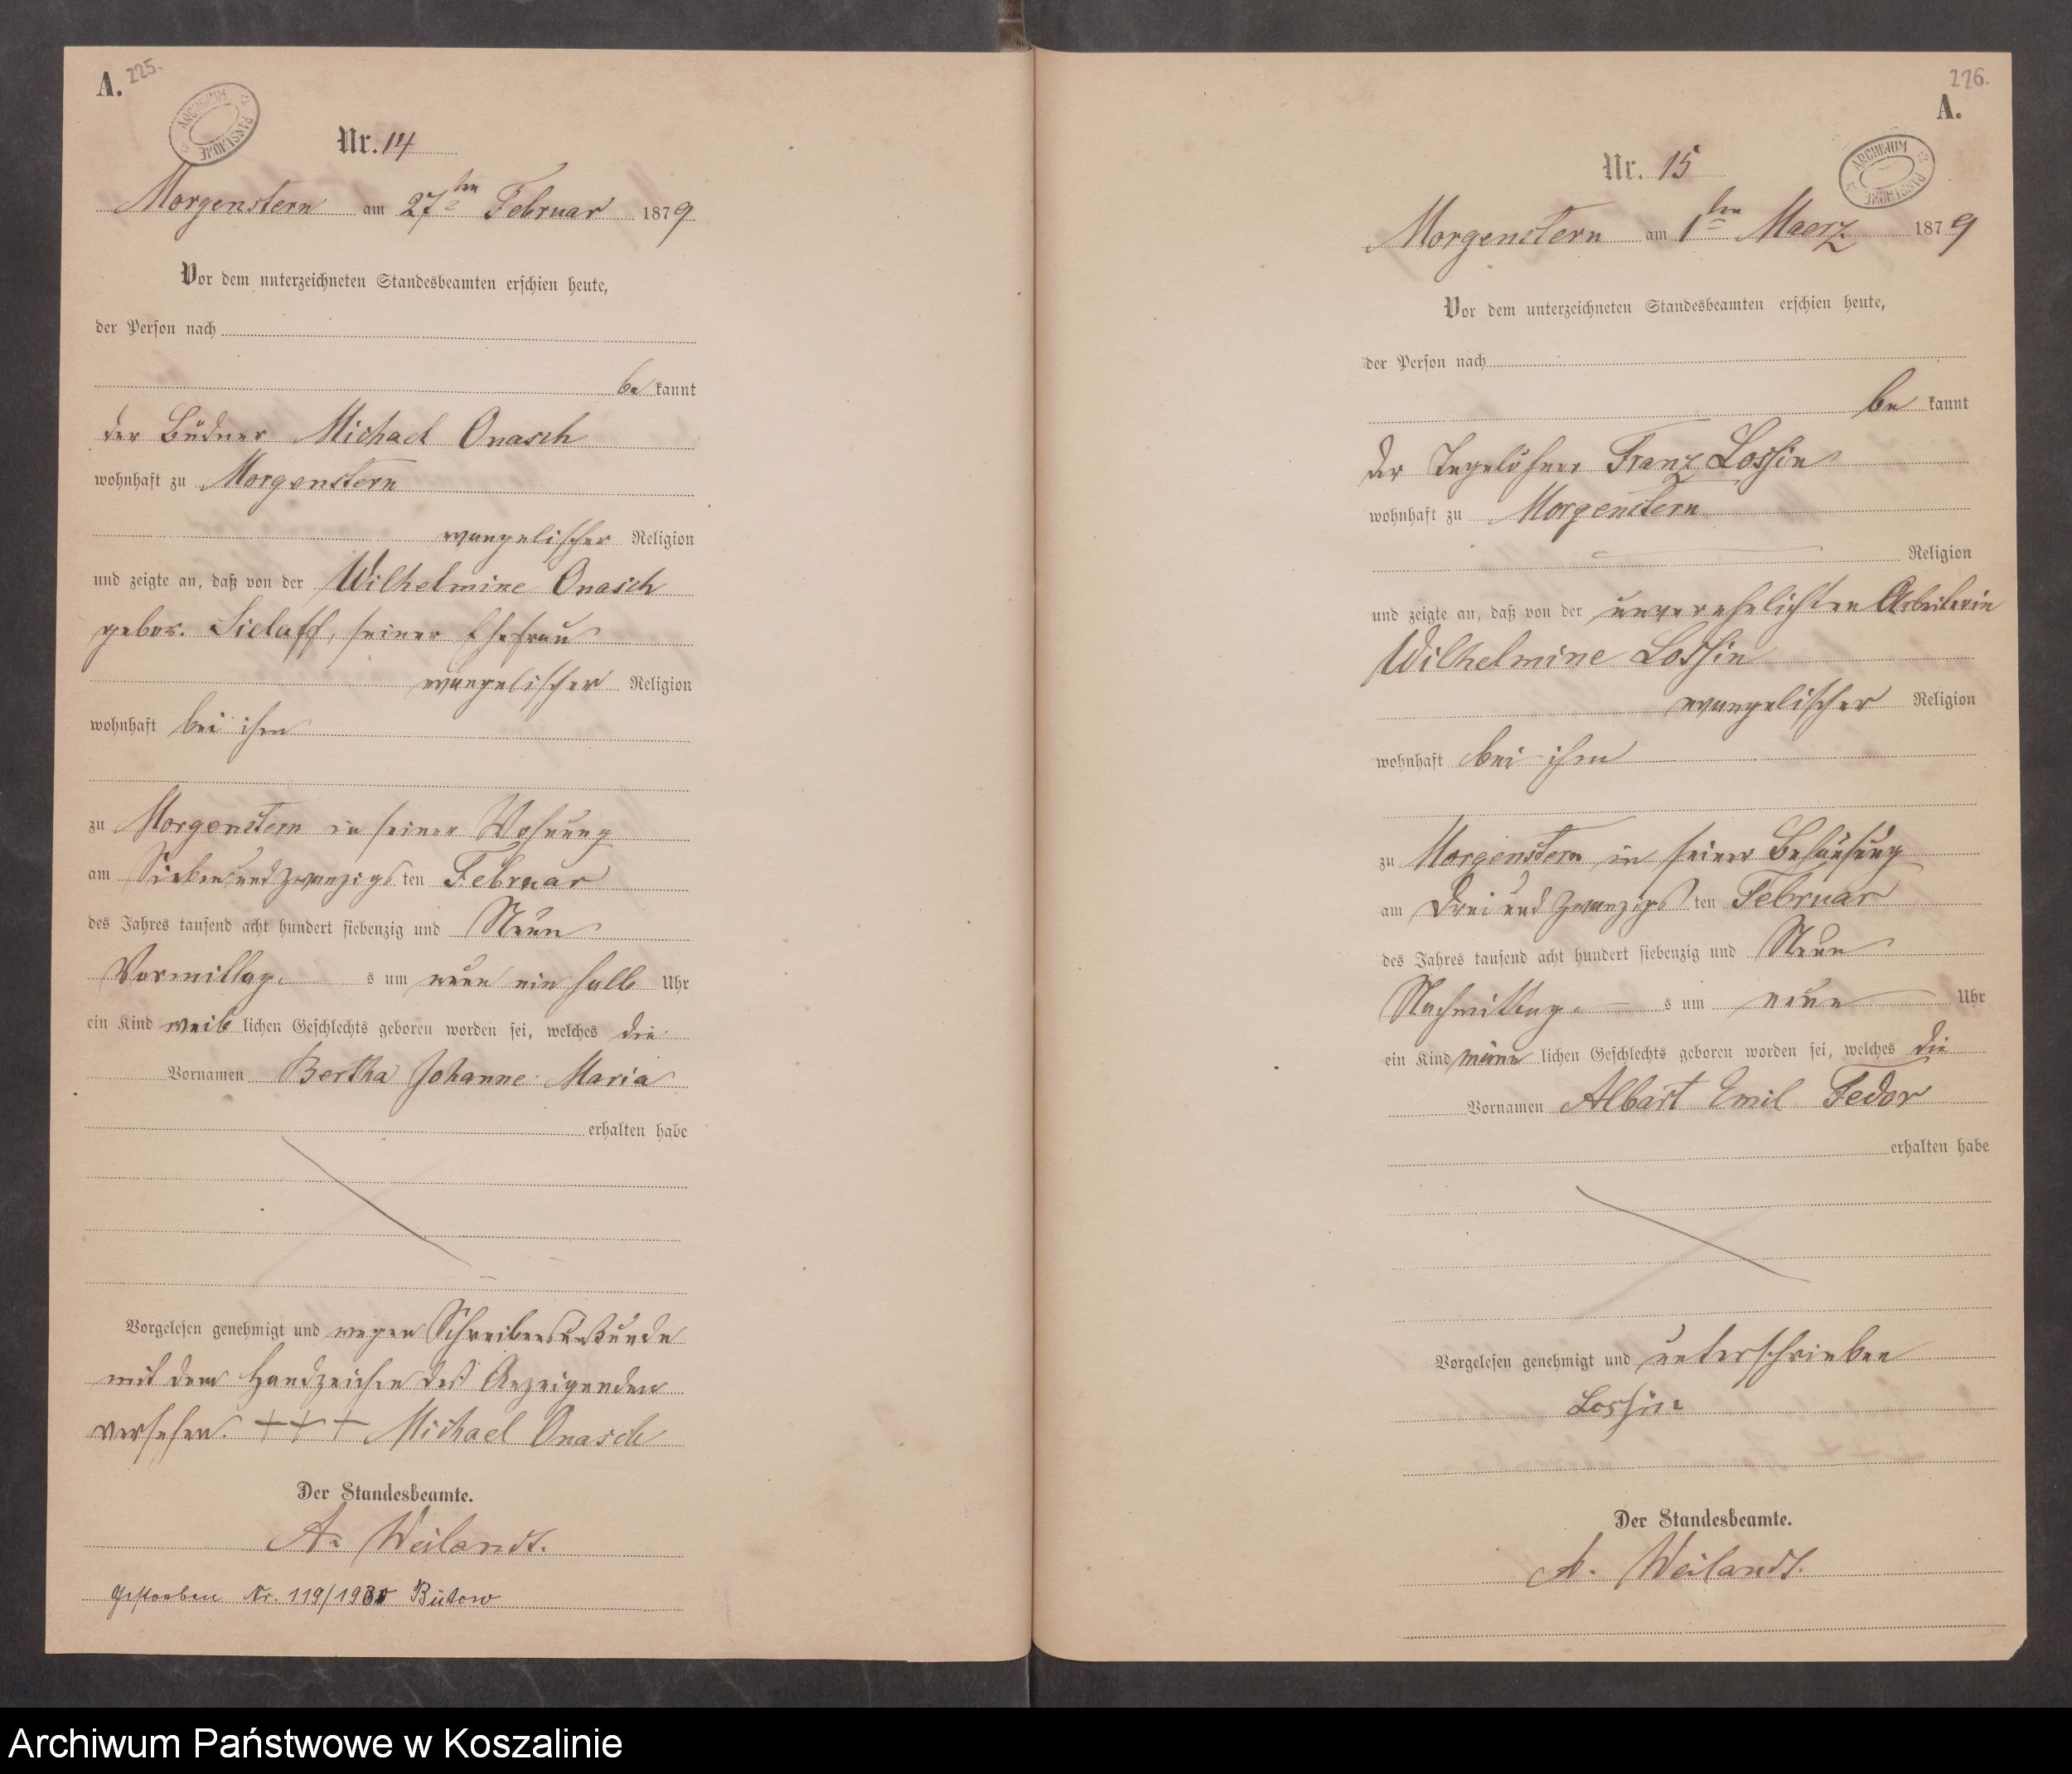 A. 225.
ARCHIWUM PAŃSTWOWE
Nr. 14
Morgenstern am 27ten Februar 1879
Vor dem unterzeichneten Standesbeamten erschien heute,
der Person nach
be kannt
der Büdner Michael Onasch
wohnhaft zu Morgenstern
evangelischer Religion
und zeigte an, daß von der Wilhelmine Onasch
gebor. Sielaff, seiner Ehefrau
evangelischer Religion
wohnhaft bei ihm
zu Morgenstern in seiner Wohnung
am Siebenundzwanzigs ten Februar
des Jahres tausend acht hundert siebenzig und Neun
Vormittag s um neun ein halb Uhr
ein Kind weib lichen Geschlechts geboren worden sei, welches die
Vornamen Bertha Johanne Maria
erhalten habe
Vorgelesen genehmigt und wegen Schreibensunkunde
mit dem Handzeichen des Anzeigenden
versehen. +++ Michael Onasch
Der Standesbeamte.
A. Weilandt.
Gestorben Nr. 119/1930 Bütow
226.
A.
ARCHIWUM PAŃSTWOWE
Nr. 15
Morgenstern am 1ten Maerz 1879
Vor dem unterzeichneten Standesbeamten erschien heute,
der Person nach
be kannt
der Tagelöhner Franz Lossin
wohnhaft zu Morgenstern
Religion
und zeigte an, daß von der unverehelichten Arbeiterin
Wilhelmine Lossin
evangelischer Religion
wohnhaft bei ihm
zu Morgenstern in seiner Behausung
am Dreiundzwanzigs ten Februar
des Jahres tausend acht hundert siebenzig und Neun
Nachmittag s um neun Uhr
ein Kind männ lichen Geschlechts geboren worden sei, welches die
Vornamen Albert Emil Fedor
erhalten habe
Vorgelesen genehmigt und unterschrieben
Lossin
Der Standesbeamte.
A. Weilandt.
Archiwum Państwowe w Koszalinie